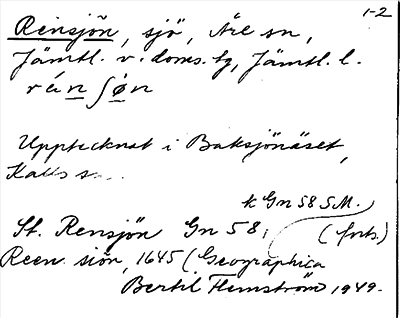 1-2
Rensjön, sjö, Åre sn,
Jämtl. v. doms. tg, Jämtl. l.
Upptecknat i Baksjönäset,
Kalls s...
k Gn 58 S.M.
St. Rensjön Gn 58, (forts.)
Reen siön, 1645 (Geographica
Bertil Flemström 1949.